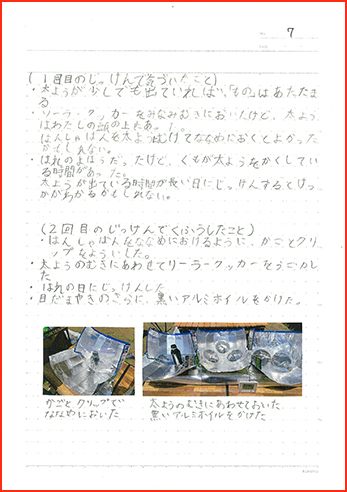 7
(1回目のじっけんで気づいたこと)
・太ようが少しでも出ていれば、「もの」はあたたま
る
・ソーラークッカーをみなみむきにおいたけど、太よう
はわたしの頭の上にあった。
はんしゃばんを太ようにむけてななめにおくとよかった
かもしれない。
・はれのよほうだったけど、くもが太ようをかくしてい
る時間があった。
太ようが出ている時間が長い日にじっけんするとけっ
かがかわるかもしれない。
(2回目のじっけんでくふうしたこと)
・はんしゃばんをななめにおけるように、かごとクリ
ップをよういした。
・太ようのむきにあわせてソーラークッカーをうごかし
た
・はれの日にじっけんした
・目だまやきのさらに、黒いアルミホイルをかけた。
かごとクリップで
ななめにおいた
太ようのむきにあわせておいた
黒いアルミホイルをかけた